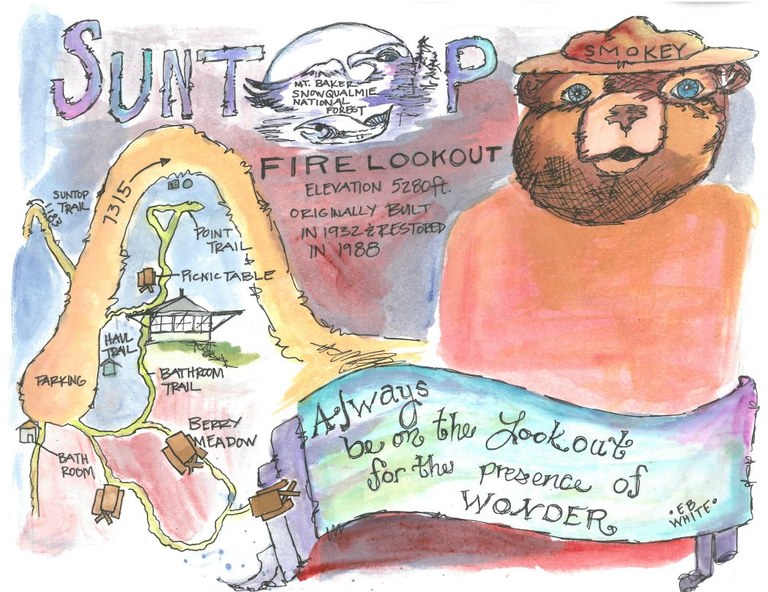 SUNTOP
MT. BAKER
SNOWQUALMIE
NATIONAL
FOREST
SMOKEY
FIRE LOOKOUT
ELEVATION 5280ft.
ORIGINALLY BUILT
IN 1932 & RESTORED
IN 1988
SUNTOP
TRAIL
1183
7315
POINT
TRAIL
PICNIC TABLE
HAUL
TRAIL
PARKING
BATHROOM
TRAIL
BERRY
MEADOW
BATH
ROOM
Always
be on the Lookout
for the presence of
WONDER
·EB
WHITE·